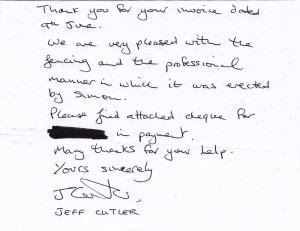 Thank you for your invoice dated
9th June.
We are very pleased with the
fencing and the professional
manner in which it was erected
by Simon.
Please find attached cheque for
in payment.
Many thanks for your help.
Yours sincerely
JEFF CUTLER